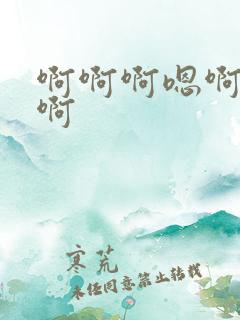 啊啊啊嗯啊
啊
寒荒
未经同意禁止转载